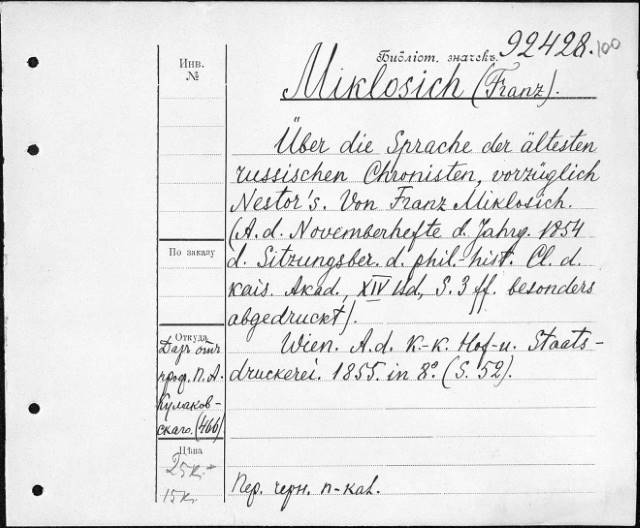 Библіот. значекъ. 92428. 100
Инв. №
Miklosich (Franz).
Über die Sprache der ältesten
russischen Chronisten, vorzüglich
Nestor's. Von Franz Miklosich.
(A. d. Novemberhefte d. Jahrg. 1854
d. Sitzungsber. d. phil.-hist. Cl. d.
kais. Akad., XIV Bd, S. 3 ff. besonders
abgedruckt).
Wien. A. d. K.-k. Hof- u. Staats-
druckerei. 1855. in 8º (S. 52).
По заказу
Откуда
Даръ отъ
проф. П. А.
Кулаков-
скаго. (466)
Цѣна
25к.
15к.
Пер. черн. п-кal.